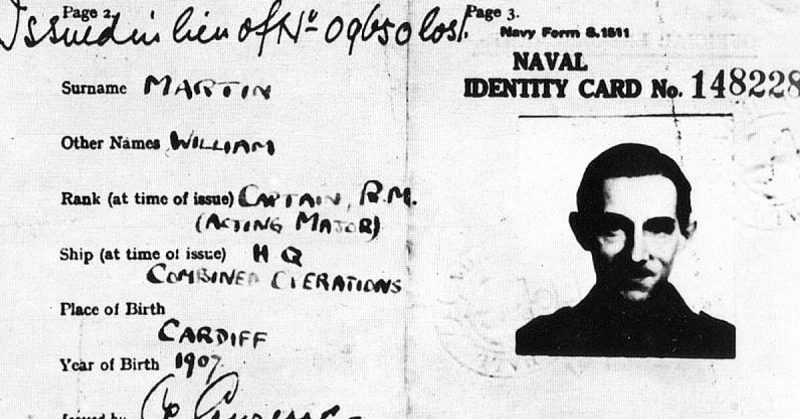 Page 2.
Issued in lieu of No 09650 lost.
Surname MARTIN
Other Names WILLIAM
Rank (at time of issue) CAPTAIN, R.M.
(ACTING MAJOR)
Ship (at time of issue) H Q
COMBINED OPERATIONS
Place of Birth
CARDIFF
Year of Birth 1907.
Issued by
Page 3.
Navy Form S.1511
NAVAL
IDENTITY CARD No. 148228